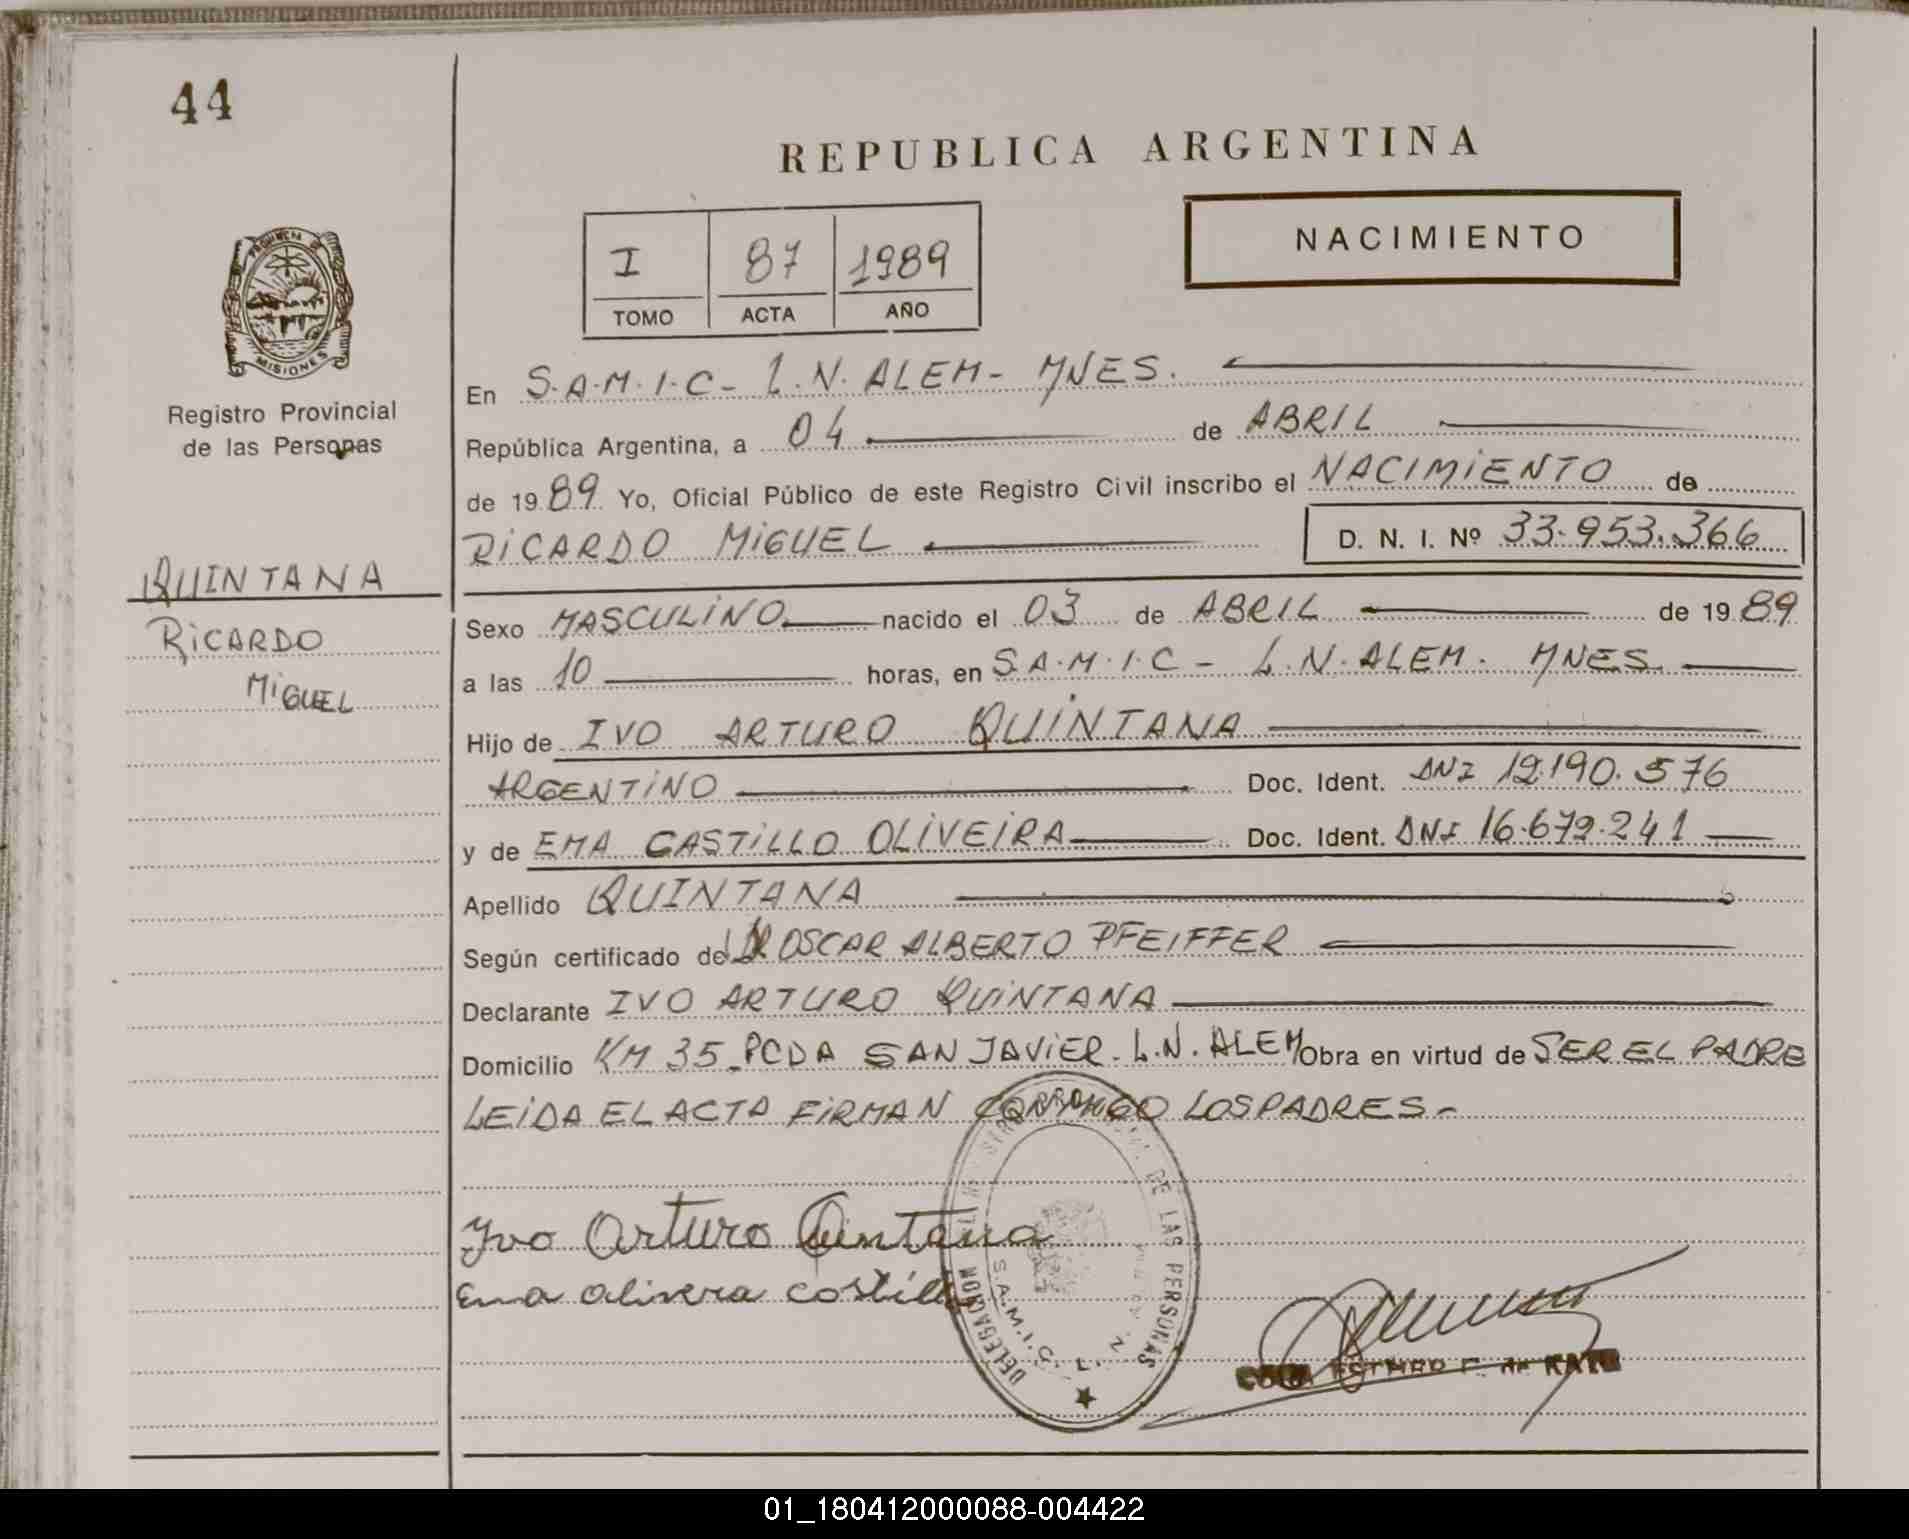 44
REPUBLICA ARGENTINA
NACIMIENTO
I 87 1989
TOMO ACTA AÑO
PROVINCIA DE
MISIONES
Registro Provincial
de las Personas
QUINTANA
RICARDO
MIGUEL
En S.A.M.I.C - L.N. ALEM - MNES.
República Argentina, a 04 de ABRIL
de 1989 Yo, Oficial Público de este Registro Civil inscribo el NACIMIENTO de
RICARDO MIGUEL D. N. I. Nº 33.953.366
Sexo MASCULINO nacido el 03 de ABRIL de 1989
a las 10 horas, en S.A.M.I.C - L.N. ALEM. MNES.
Hijo de IVO ARTURO QUINTANA
ARGENTINO Doc. Ident. DNI 12.190.576
y de EMA CASTILLO OLIVEIRA Doc. Ident. DNI 16.672.241
Apellido QUINTANA
Según certificado de DR OSCAR ALBERTO PFEIFFER
Declarante IVO ARTURO QUINTANA
Domicilio KM 35 - PCDA SAN JAVIER - L.N. ALEM Obra en virtud de SER EL PADRE
LEIDA EL ACTA FIRMAN CONMIGO LOS PADRES -
Ivo Arturo Quintana
Ema olivera costillo
DE LAS PERSONAS
DELEGACION
S.A.M.I.C. L. N.
01_180412000088-004422